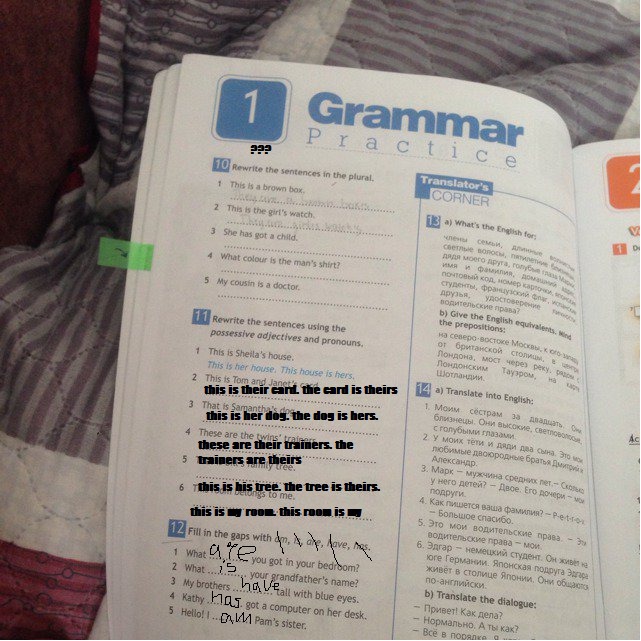 1
Grammar
Practice
???
10 Rewrite the sentences in the plural.
1 This is a brown box.
2 This is the girl's watch.
3 She has got a child.
4 What colour is the man's shirt?
5 My cousin is a doctor.
11 Rewrite the sentences using the
possessive adjectives and pronouns.
1 This is Sheila's house.
This is her house. This house is hers.
2 This is Tom and Janet's
this is their card. the card is theirs
3 That is Samantha's dog.
this is her dog. the dog is hers.
4 These are the twins'
these are their trainers. the
trainers are theirs
5 family tree.
this is his tree. the tree is theirs.
6 room belongs to me.
this is my room. this room is my
12 Fill in the gaps with am, is, are, have, has.
1 What are you got in your bedroom?
2 What is your grandfather's name?
3 My brothers have tall with blue eyes.
4 Kathy has got a computer on her desk.
5 Hello! I am Pam's sister.
Translator's
CORNER
13 a) What's the English for;
члены семьи, длинные
светлые волосы, пятилетние
дядя моего друга, голубые глаза
имя и фамилия, домашний адрес,
почтовый код, номер карточки, японские
студенты, французский флаг, испанские
друзья, удостоверение личности,
водительские права?
b) Give the English equivalents. Mind
the prepositions:
на северо-востоке Москвы, к юго-западу
от британской столицы, в центре
Лондона, мост через реку, рядом с
Лондонским Тауэром, на карте
Шотландии.
14 a) Translate into English:
1. Моим сёстрам за двадцать. Они
близнецы. Они высокие, светловолосые,
с голубыми глазами.
2. У моих тёти и дяди два сына. Это мои
любимые двоюродные братья Дмитрий и
Александр.
3. Марк – мужчина средних лет. – Сколько
у него детей? – Двое. Его дочери – мои
подруги.
4. Как пишется ваша фамилия? – P-e-t-r-o-v.
– Большое спасибо.
5. Это мои водительские права. – Эти
водительские права – мои.
6. Эдгар – немецкий студент. Он живёт на
юге Германии. Японская подруга Эдгара
живёт в столице Японии. Они общаются
по-английски.
b) Translate the dialogue:
– Привет! Как дела?
– Нормально. А ты как?
– Всё в порядке. Я
2
1